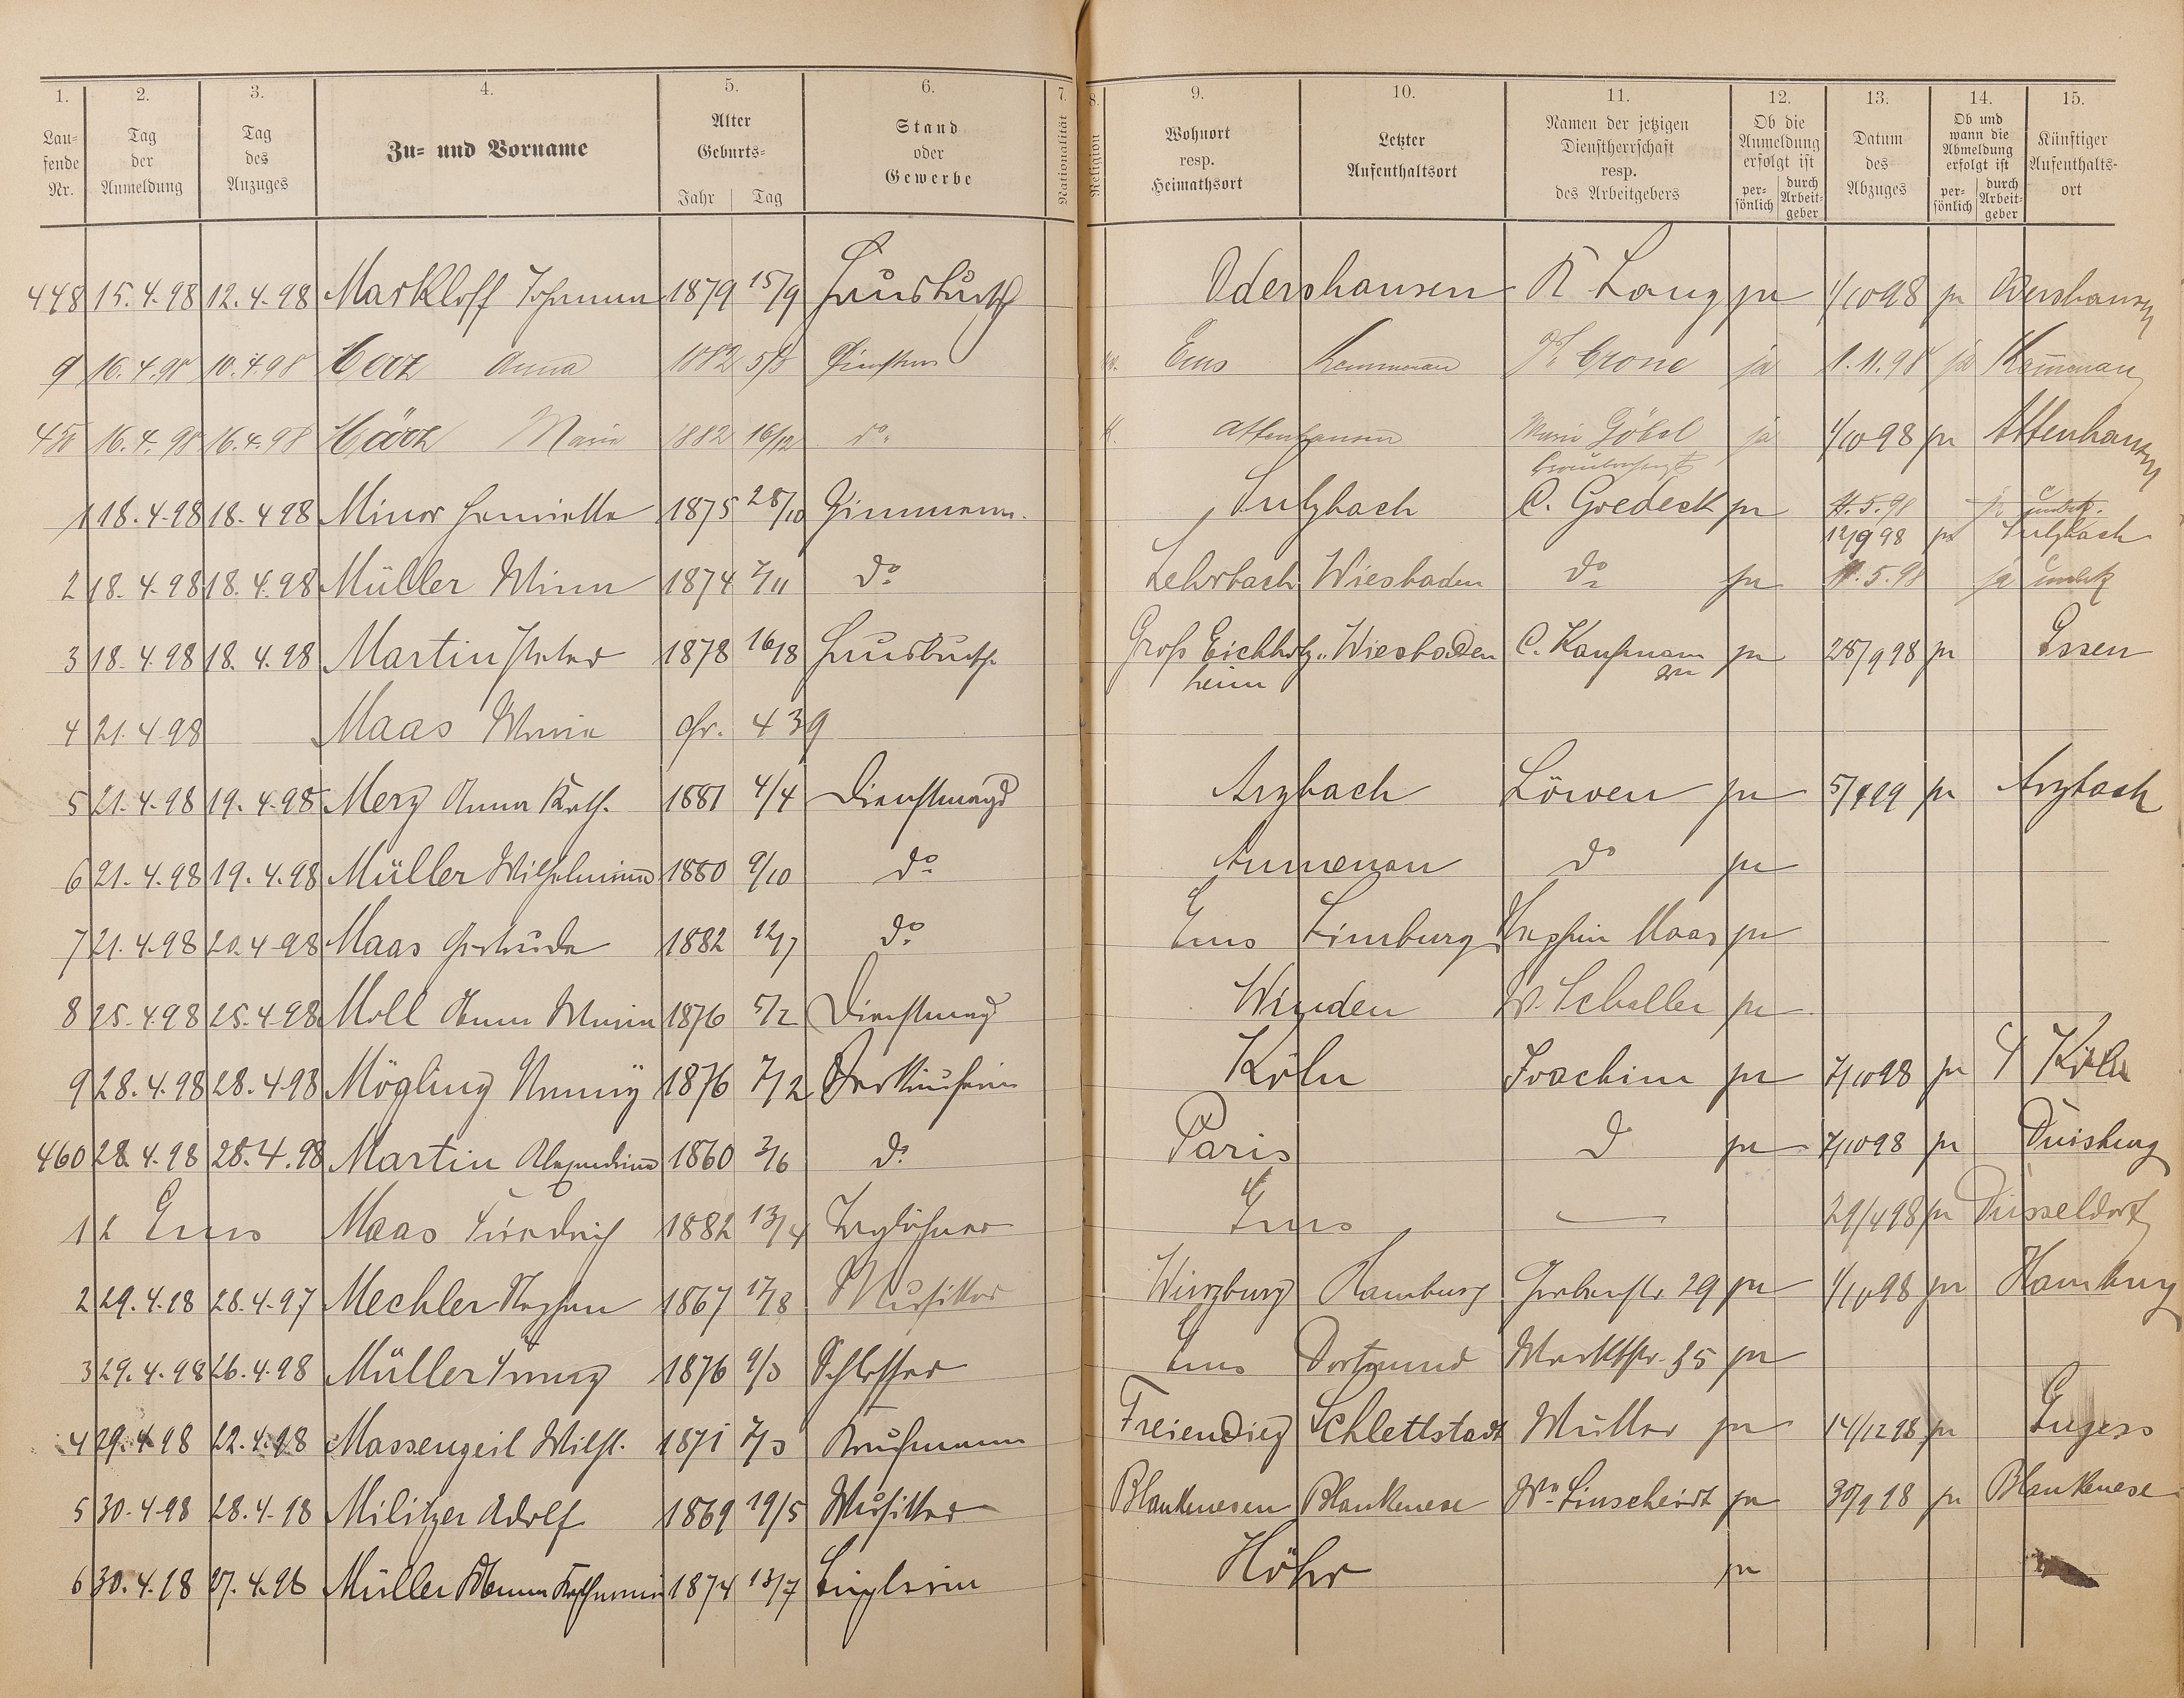 1. 2. 3. 4. 5. 6. 7. 8. 9. 10. 11. 12. 13. 14. 15.
Lau-
fende
Nr.
Tag
der
Anmeldung
Tag
des
Anzuges
Zu- und Vorname
Alter
Geburts-
Jahr Tag
Stand
oder
Gewerbe
Nationalität
Religion
Wohnort
resp.
Heimathsort
Letzter
Aufenthaltsort
Namen der jetzigen
Dienstherrschaft
resp.
des Arbeitgebers
Ob die
Anmeldung
erfolgt ist
per-
sönlich
durch
Arbeit-
geber
Datum
des
Abzuges
Ob und
wann die
Abmeldung
erfolgt ist
per-
sönlich
durch
Arbeit-
geber
Künftiger
Aufenthalts-
ort
448 15.4.98 12.4.98 Markloff Johann 1879 15/9 Hausbursch Odershausen K Lang ja 1/10 98 ja
9 16.4.98 10.4.98 Anna 1882 5/8 Ems Kemmenau Crone ja 1.11.98 ja Kemenau
450 16.4.98 16.4.98 Marie 1882 16/12 do. Attenhausen Marie Göbel ja 1/10 98 ja Attenhausen
1 18.4.98 18.4.98 Minor Henriette 1875 28/10 Zimmerm. Sulzbach C. Goedeck ja 11.5.98 ja umbek.
12/9 98 ja Sulzbach
2 18.4.98 18.4.98 Müller Minna 1874 7/11 do Lehrbach Wiesbaden do ja 11.5.98 ja umbek
3 18.4.98 18.4.98 Martin Peter 1878 16/8 Hausbursch Groß Eichholz- Wiesbaden C. Kaufmann ja 28/9 98 ja Essen
heim
4 21.4.98 Maas Maria cfr. 439
5 21.4.98 19.4.98 Merz Anna Kath. 1881 4/4 Dienstmagd Arzbach Löwen ja 5/1 99 ja Arzbach
6 21.4.98 19.4.98 Müller Wilhelmine 1880 9/10 do. Aumenau do ja
7 21.4.98 20.4.98 Maas Gertrude 1882 12/7 do. Ems Limburg Stephan Maas ja
8 25.4.98 25.4.98 Moll Anna Maria 1876 5/2 Dienstmagd Winden W. Schaller ja
9 28.4.98 28.4.98 Mögling Nanny 1876 7/2 Verkäuferin Köln Joachim ja 7/10 98 ja Köln
460 28.4.98 28.4.98 Martin Alexandrine 1860 2/6 do. Paris do ja 7/10 98 ja Duisburg
1 Ems Maas Friedrich 1882 13/4 Taglöhner Ems — 29/4 98 ja Düsseldorf
2 29.4.98 28.4.97 Mechler Stephan 1867 17/8 Musiker Würzburg Hamburg Grabenstr 29 ja 1/10 98 ja Hamburg
3 29.4.98 26.4.98 Müller Franz 1876 9/3 Schlosser Ems Dortmund Marktstr. 35 ja
4 29.4.98 22.4.98 Massengeil Wilh. 1871 7/3 Kaufmann Freiendiez Schlettstadt Müller ja 14/12 98 ja
5 30.4.98 28.4.98 Militzer Adolf 1869 19/5 Musiker Blankenesen Blankenese Ww Linscheidt ja 30/9 98 ja Blankenese
6 30.4.98 27.4.98 Müller Anna Katharina 1874 13/7 Büglerin Höhr ja